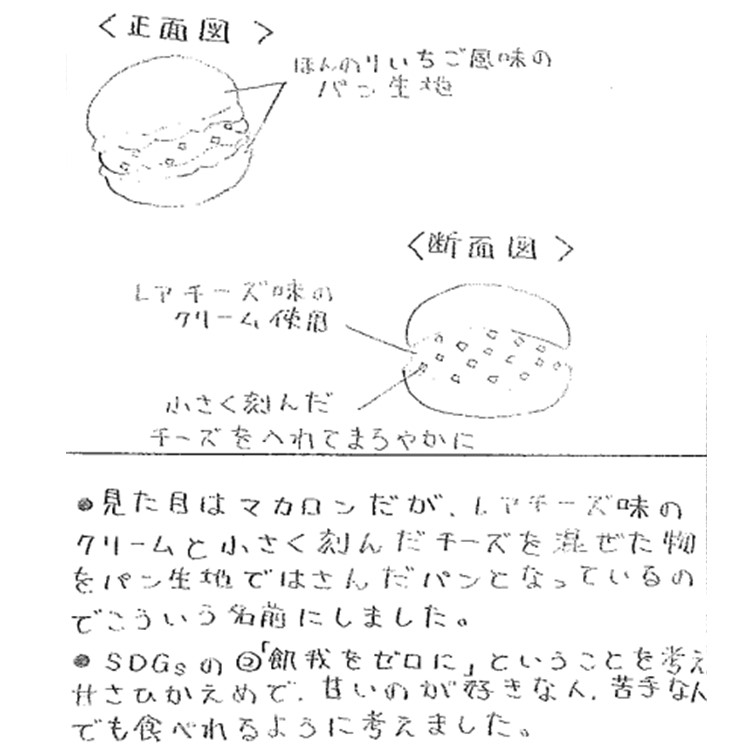 <正面図>
ほんのりいちご風味の
パン生地
<断面図>
レアチーズ味の
クリーム使用
小さく刻んだ
チーズを入れてまろやかに
●見た目はマカロンだが、レアチーズ味の
クリームと小さく刻んだチーズを混ぜた物
をパン生地ではさんだパンとなっているの
でこういう名前にしました。
●SDGsの②「飢餓をゼロに」ということを考え
甘さひかえめで、甘いのが好きな人、苦手な人
でも食べれるように考えました。